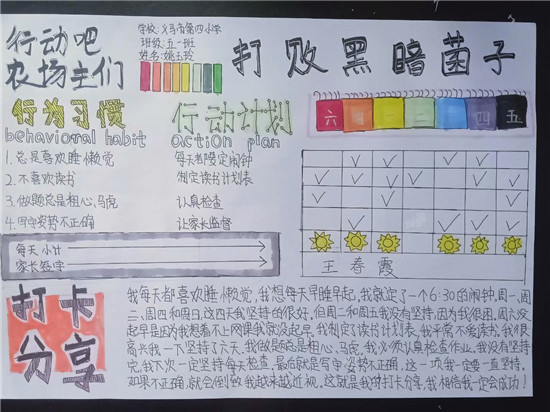 行动吧
农场主们
学校:义乌市第四小学
班级:五一班
姓名:姚玉玲
打败黑暗菌子
行为习惯
行动计划
behavioral habit
action plan
1.总是喜欢睡懒觉
每天都要定闹钟
2.不喜欢读书
制定读书计划表
3.做题总是粗心,马虎
认真检查
4.写字姿势不正确
让家长监督
六 日 一 二 三 四 五
每天小计
家长签字
王春霞
打卡
分享
我每天都喜欢睡懒觉,我想每天早睡早起,我就定了一个6:30的闹钟,周一、
二、周四和周日,这四天我坚持的很好,但周二和周五我没有坚持,因为我很困,周六没
起早是因为我想着不上网课我就没起早,我制定了读书计划表,我平常不爱读书,我很
高兴我一下坚持了六天,我做题总是粗心,马虎,我必须认真检查作业,我没有坚持
完,我下次一定坚持每天检查,最后就是写字姿势不正确,这一项我一定要一直坚持,
如果不正确,就会倒致我越来越近视,这就是我的打卡分享,我相信我一定会成功!